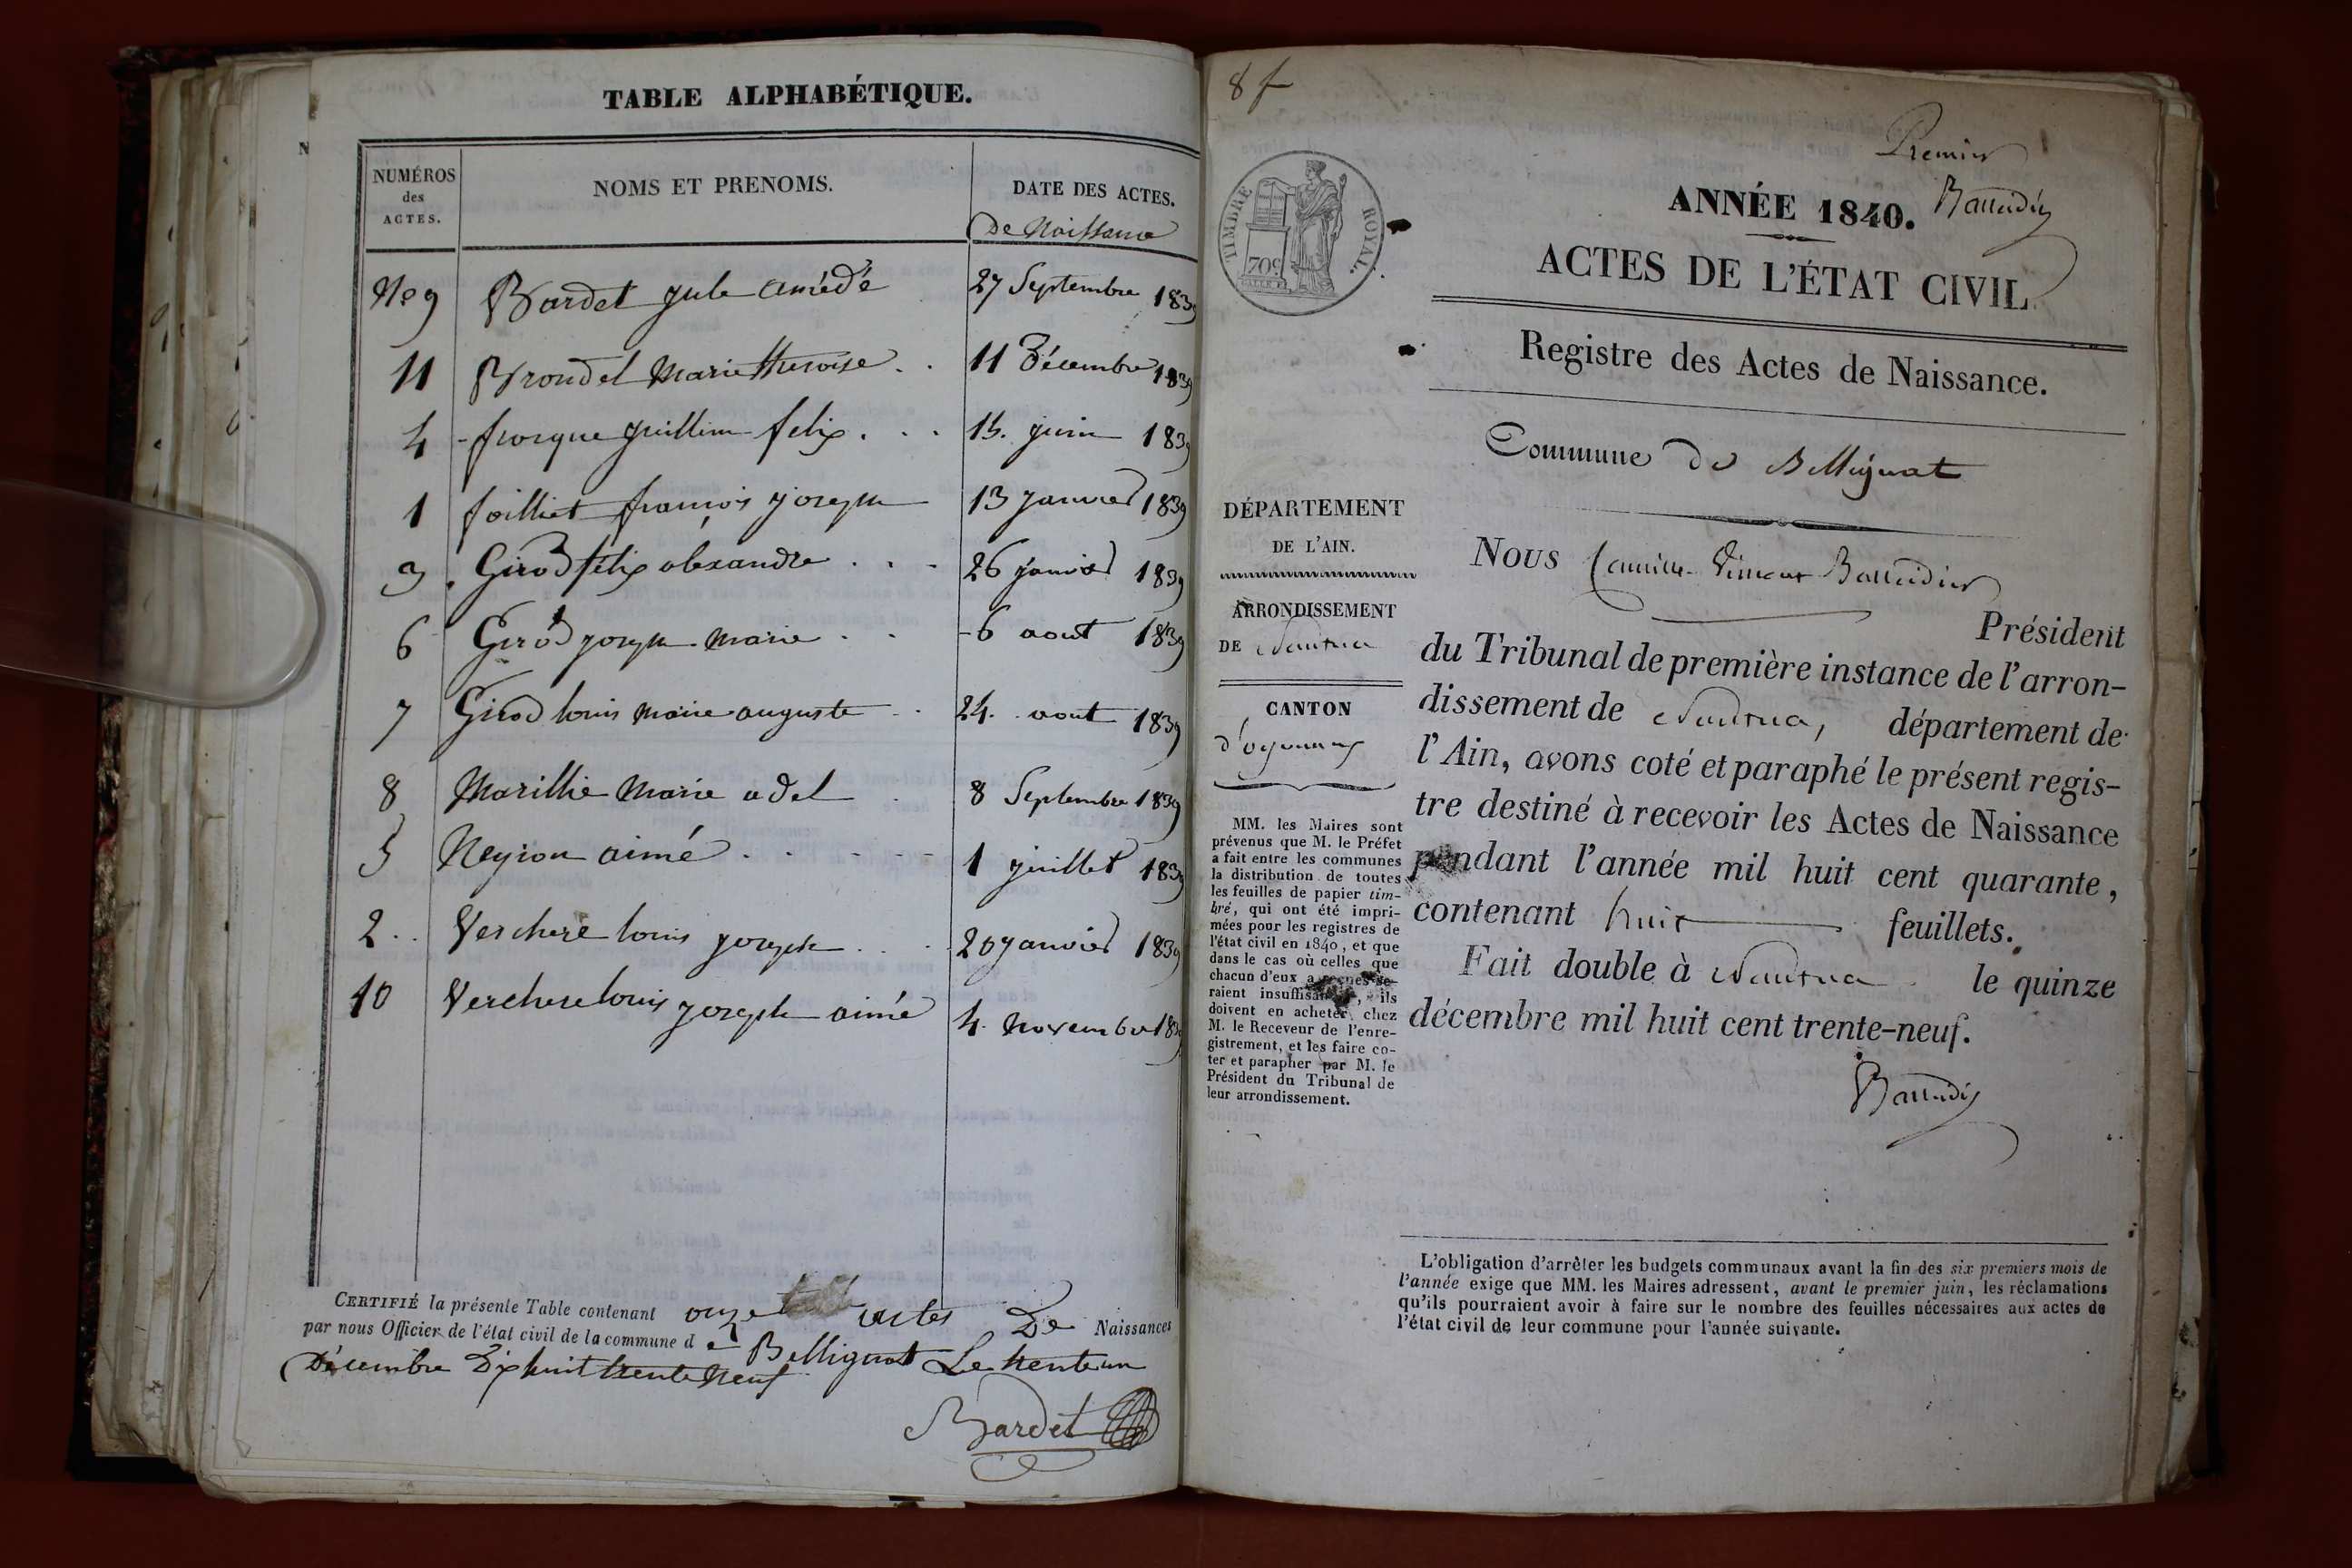 TABLE ALPHABÉTIQUE.
NUMÉROS
des
ACTES.
NOMS ET PRENOMS.
DATE DES ACTES.
De Naissance
No 9 Bardet jule amédé 27 Septembre 1839
11 Brondel Marie theroise 11 Décembre 1839
4 guillien felix 15. juin 1839
1 foilliet françois joseph 13 janvier 1839
3 Girod félix alexandre 26 janvier 1839
6 Girod joseph marie 6 aout 1839
7 Girod louis marie auguste 24. aout 1839
8 Marillie Marie adel 8 Septembre 1839
5 Neyron aimé 1 juillet 1839
2 Verchere louis joseph 20 janvier 1839
10 Verchere louis joseph aimé 4 Novembre 1839
CERTIFIÉ la présente Table contenant onze actes De Naissances
par nous Officier de l'état civil de la commune de Bellignat Le trente un
Décembre Dix huit trente Neuf
Bardet
8 f
Premier
TIMBRE ROYAL.
70c
ANNÉE 1840.
ACTES DE L'ÉTAT CIVIL.
Registre des Actes de Naissance.
Commune de Bellignat
DÉPARTEMENT
DE L'AIN.
ARRONDISSEMENT
DE Nantua
CANTON
d'oyonnax
MM. les Maires sont
prévenus que M. le Préfet
a fait entre les communes
la distribution de toutes
les feuilles de papier tim-
bré, qui ont été impri-
mées pour les registres de
l'état civil en 1840, et que
dans le cas où celles que
chacun d'eux a reçues se-
raient insuffisantes, ils
doivent en acheter chez
M. le Receveur de l'enre-
gistrement, et les faire co-
ter et parapher par M. le
Président du Tribunal de
leur arrondissement.
NOUS Camille Vincent
Président
du Tribunal de première instance de l'arron-
dissement de Nantua, département de
l'Ain, avons coté et paraphé le présent regis-
tre destiné à recevoir les Actes de Naissance
pendant l'année mil huit cent quarante,
contenant huit feuillets.
Fait double à Nantua le quinze
décembre mil huit cent trente-neuf.
L'obligation d'arrêter les budgets communaux avant la fin des six premiers mois de
l'année exige que MM. les Maires adressent, avant le premier juin, les réclamations
qu'ils pourraient avoir à faire sur le nombre des feuilles nécessaires aux actes de
l'état civil de leur commune pour l'année suivante.